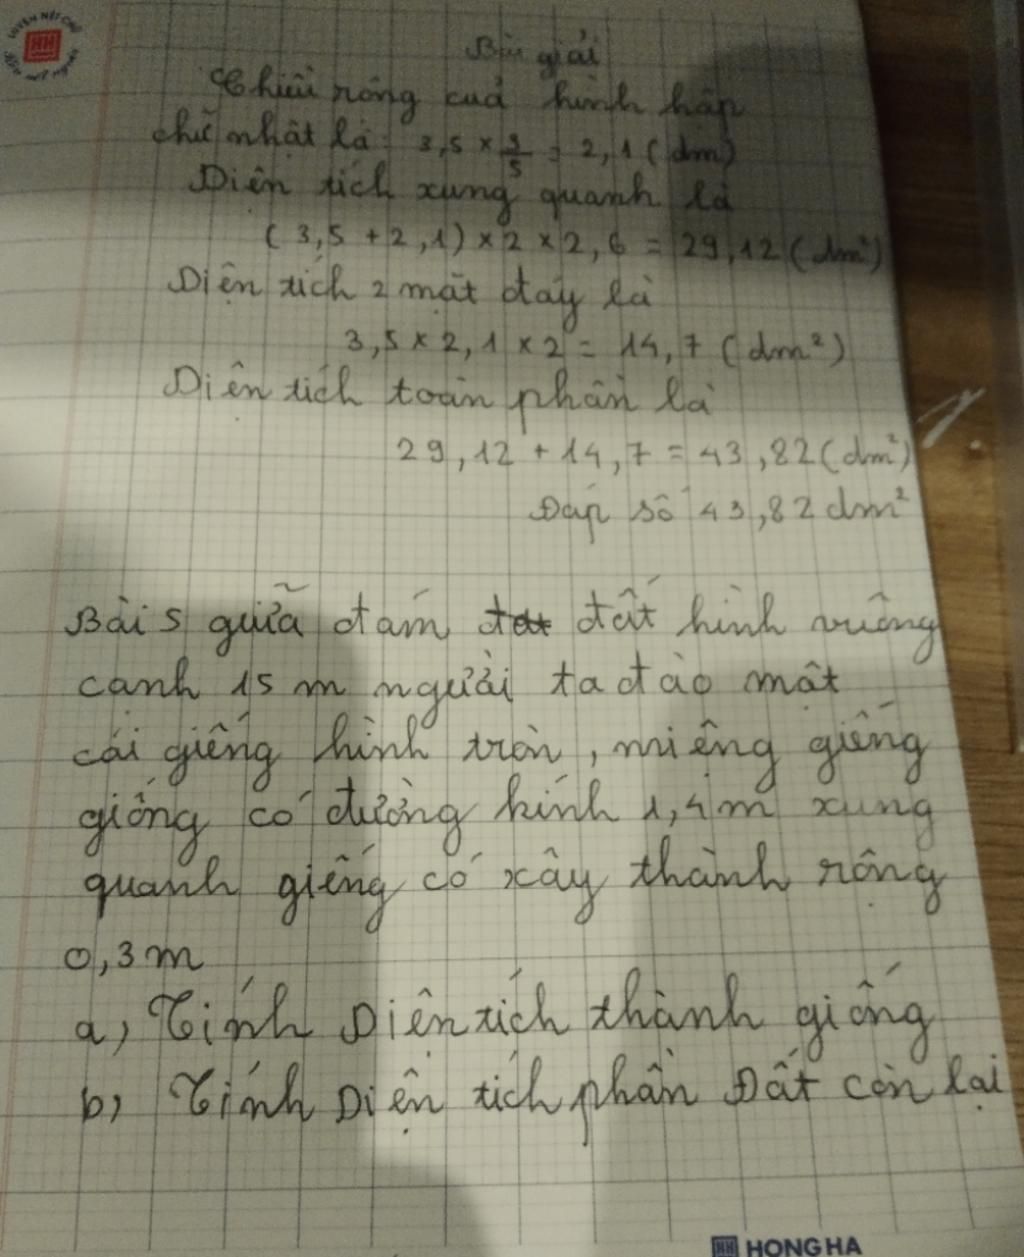 LUYỆN NÉT CHỮ
Bài giải
Chiều rông cuả hình hâp
chữ nhật là: 3,5 × 3/5 = 2,1 (dm)
Diên tích xung quanh là
(3,5 + 2,1) × 2 × 2,6 = 29,12 (dm²)
Diện tích 2 mặt đáy là
3,5 × 2,1 × 2 = 14,7 (dm²)
Diên tích toàn phần là
29,12 + 14,7 = 43,82 (dm²)
Đáp số 43,82 dm²
Bài 5 giữa đám đất hình vuông
cạnh 15 m người ta đào một
cái giếng hình tròn, miêng giếng
giống có đường kính 1,4m xung
quanh giếng có xây thành rộng
0,3m
a, Tính Diên tích thành giếng
b, Tính Diện tích phần Đất còn lại
HONG HA